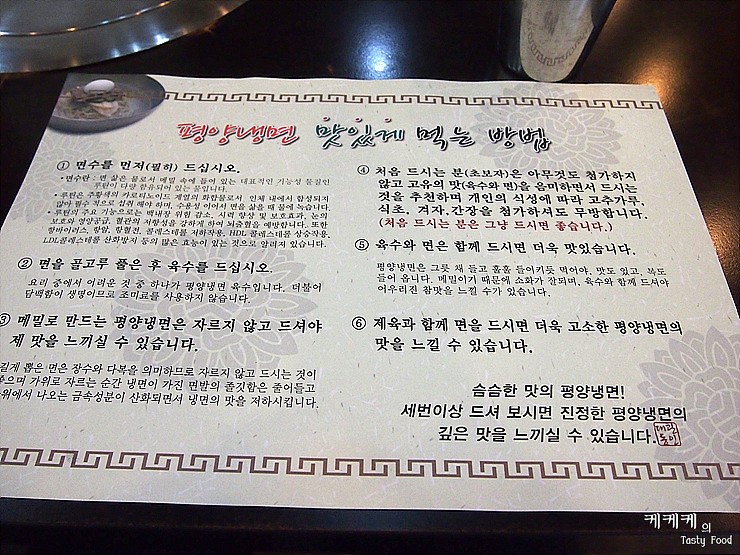 평양냉면 맛있게 먹는 방법
① 면수를 먼저(필히) 드십시오.
• 면수란 : 면 삶은 물로서 메밀 속에 들어 있는 대표적인 기능성 물질인
루틴이 다량 함유되어 있는 물입니다.
• 루틴은 주황색의 카로티노이드 계열의 화합물로서 인체 내에서 합성되지
않아 필수적으로 섭취 해야 하며, 수용성 이어서 면을 삶을 때 물에 녹습니다.
• 루틴의 주요 기능으로는 백내장 위험 감소, 시력 향상 및 보호효과, 눈의
보호와 영양공급, 혈관의 저항성을 강하게 하여 뇌출혈을 예방합니다. 또한
항바이러스, 항암, 항혈전, 콜레스테롤 저하작용, HDL 콜레스테롤 상승작용,
LDL콜레스테롤 산화방지 등의 많은 효능이 있는 것으로 알려지 있습니다.
② 면을 골고루 풀은 후 육수를 드십시오.
요리 중에서 어려운 것 중 하나가 평양냉면 육수입니다. 더불어
담백함이 생명이므로 조미료를 사용하지 않습니다.
③ 메밀로 만드는 평양냉면은 자르지 않고 드셔야
제 맛을 느끼실 수 있습니다.
길게 뽑은 면은 장수와 다복을 의미하므로 자르지 않고 드시는 것이
으며 가위로 자르는 순간 냉면이 가진 면발의 쫄깃함은 줄어들고
위에서 나오는 금속성분이 산화되면서 냉면의 맛을 저하시킵니다.
④ 처음 드시는 분(초보자)은 아무것도 첨가하지
않고 고유의 맛(육수와 면)을 음미하면서 드시는
것을 추천하며 개인의 식성에 따라 고추가루,
식초, 겨자,간장을 첨가하셔도 무방합니다.
(처음 드시는 분은 그냥 드시면 좋습니다.)
⑤ 육수와 면은 함께 드시면 더욱 맛있습니다.
평양냉면은 그릇 채 들고 훌훌 들이키듯 먹어야, 맛도 있고, 복도
들어 옵니다. 메밀이기 때문에 소화가 잘되며, 육수와 함께 드셔야
어우러진 참맛을 느낄 수가 있습니다.
⑥ 제육과 함께 면을 드시면 더욱 고소한 평양냉면의
맛을 느낄 수 있습니다.
슴슴한 맛의 평양냉면!
세번이상 드셔 보시면 진정한 평양냉면의
깊은 맛을 느끼실 수 있습니다.
케케케의
Tasty Food